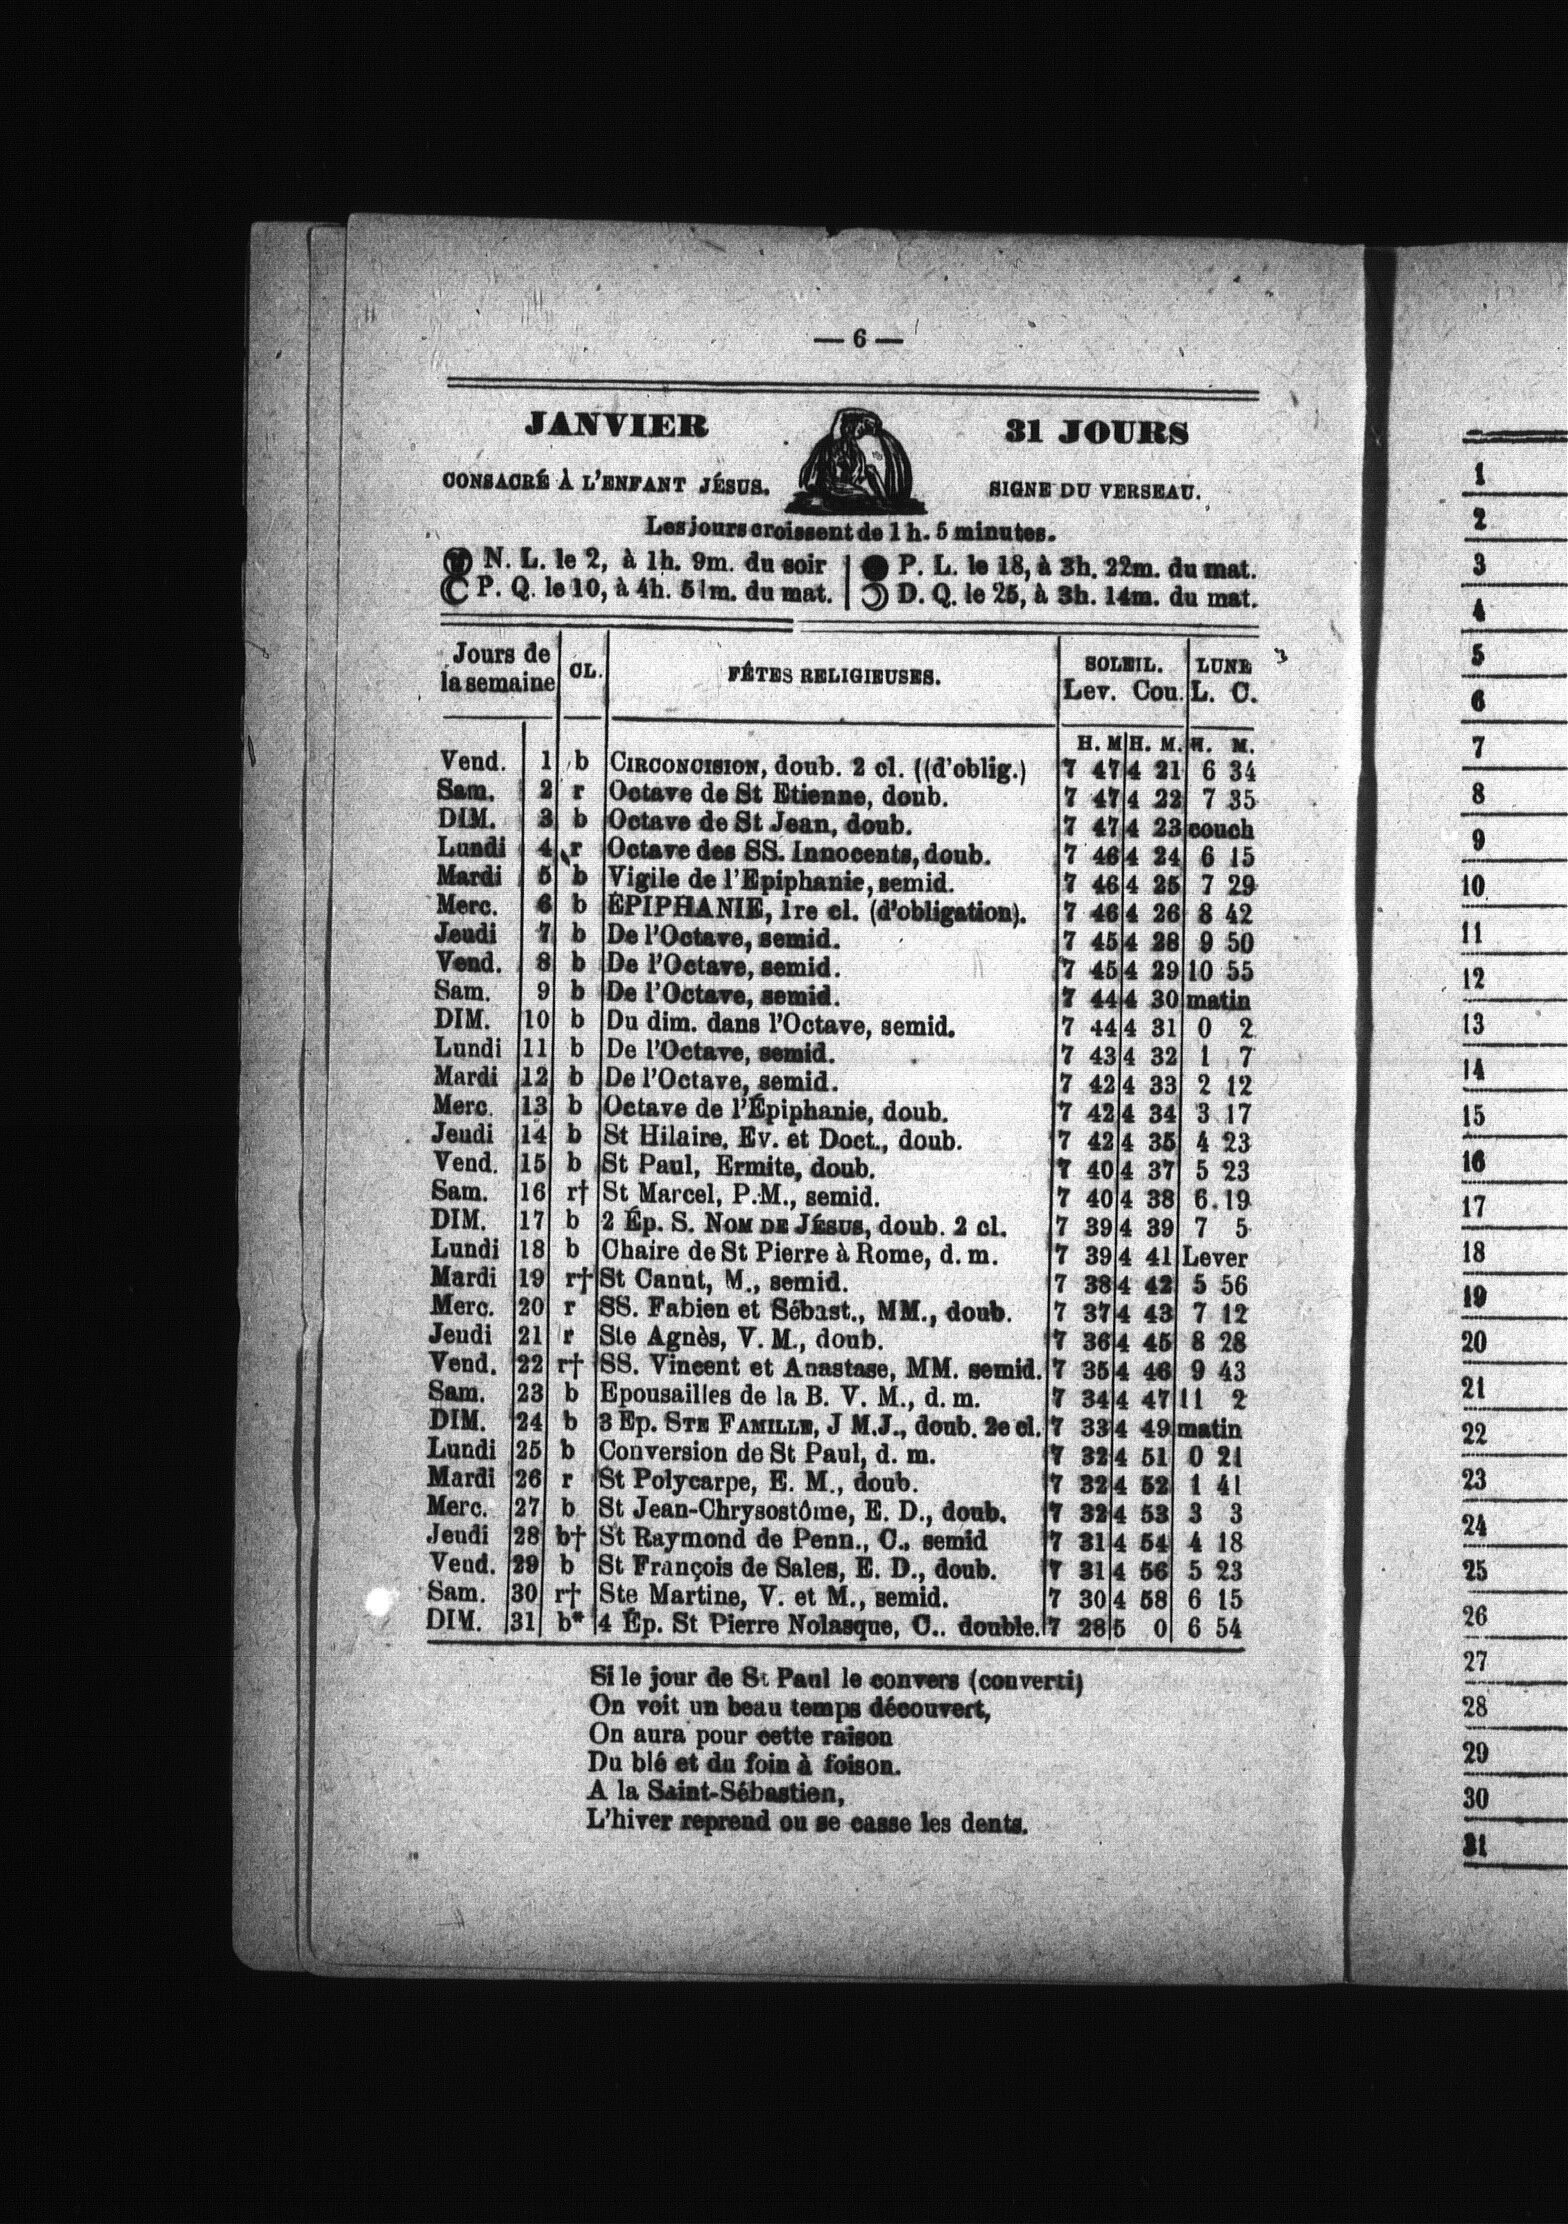 — 6 —
JANVIER 31 JOURS
CONSACRÉ À L'ENFANT JÉSUS. SIGNE DU VERSEAU.
Les jours croissent de 1 h. 5 minutes.
N. L. le 2, à 1h. 9m. du soir | P. L. le 18, à 3h. 22m. du mat.
P. Q. le 10, à 4h. 51m. du mat. | D. Q. le 25, à 3h. 14m. du mat.
Jours de la semaine CL. FÊTES RELIGIEUSES. SOLEIL. Lev. Cou. LUNE L. C.
H. M H. M. H. M.
Vend. 1 b CIRCONCISION, doub. 2 cl. ((d'oblig.) 7 47 4 21 6 34
Sam. 2 r Octave de St Etienne, doub. 7 47 4 22 7 35
DIM. 3 b Octave de St Jean, doub. 7 47 4 23 couch
Lundi 4 r Octave des SS. Innocents, doub. 7 46 4 24 6 15
Mardi 5 b Vigile de l'Epiphanie, semid. 7 46 4 25 7 29
Merc. 6 b ÉPIPHANIE, 1re cl. (d'obligation). 7 46 4 26 8 42
Jeudi 7 b De l'Octave, semid. 7 45 4 28 9 50
Vend. 8 b De l'Octave, semid. 7 45 4 29 10 55
Sam. 9 b De l'Octave, semid. 7 44 4 30 matin
DIM. 10 b Du dim. dans l'Octave, semid. 7 44 4 31 0 2
Lundi 11 b De l'Octave, semid. 7 43 4 32 1 7
Mardi 12 b De l'Octave, semid. 7 42 4 33 2 12
Merc. 13 b Octave de l'Épiphanie, doub. 7 42 4 34 3 17
Jeudi 14 b St Hilaire, Ev. et Doct., doub. 7 42 4 35 4 23
Vend. 15 b St Paul, Ermite, doub. 7 40 4 37 5 23
Sam. 16 r† St Marcel, P.M., semid. 7 40 4 38 6.19
DIM. 17 b 2 Ép. S. NOM DE JÉSUS, doub. 2 cl. 7 39 4 39 7 5
Lundi 18 b Chaire de St Pierre à Rome, d. m. 7 39 4 41 Lever
Mardi 19 r† St Canut, M., semid. 7 38 4 42 5 56
Merc. 20 r SS. Fabien et Sébast., MM., doub. 7 37 4 43 7 12
Jeudi 21 r Ste Agnès, V. M., doub. 7 36 4 45 8 28
Vend. 22 r† SS. Vincent et Anastase, MM. semid. 7 35 4 46 9 43
Sam. 23 b Epousailles de la B. V. M., d. m. 7 34 4 47 11 2
DIM. 24 b 3 Ep. STE FAMILLE, J M.J., doub. 2e cl. 7 33 4 49 matin
Lundi 25 b Conversion de St Paul, d. m. 7 32 4 51 0 21
Mardi 26 r St Polycarpe, E. M., doub. 7 32 4 52 1 41
Merc. 27 b St Jean-Chrysostôme, E. D., doub. 7 32 4 53 3 3
Jeudi 28 b† St Raymond de Penn., C., semid 7 31 4 54 4 18
Vend. 29 b St François de Sales, E. D., doub. 7 31 4 56 5 23
Sam. 30 r† Ste Martine, V. et M., semid. 7 30 4 58 6 15
DIM. 31 b* 4 Ép. St Pierre Nolasque, C.. double. 7 28 5 0 6 54
Si le jour de St Paul le convers (converti)
On voit un beau temps découvert,
On aura pour cette raison
Du blé et du foin à foison.
A la Saint-Sébastien,
L'hiver reprend ou se casse les dents.
1
2
3
4
5
6
7
8
9
10
11
12
13
14
15
16
17
18
19
20
21
22
23
24
25
26
27
28
29
30
31